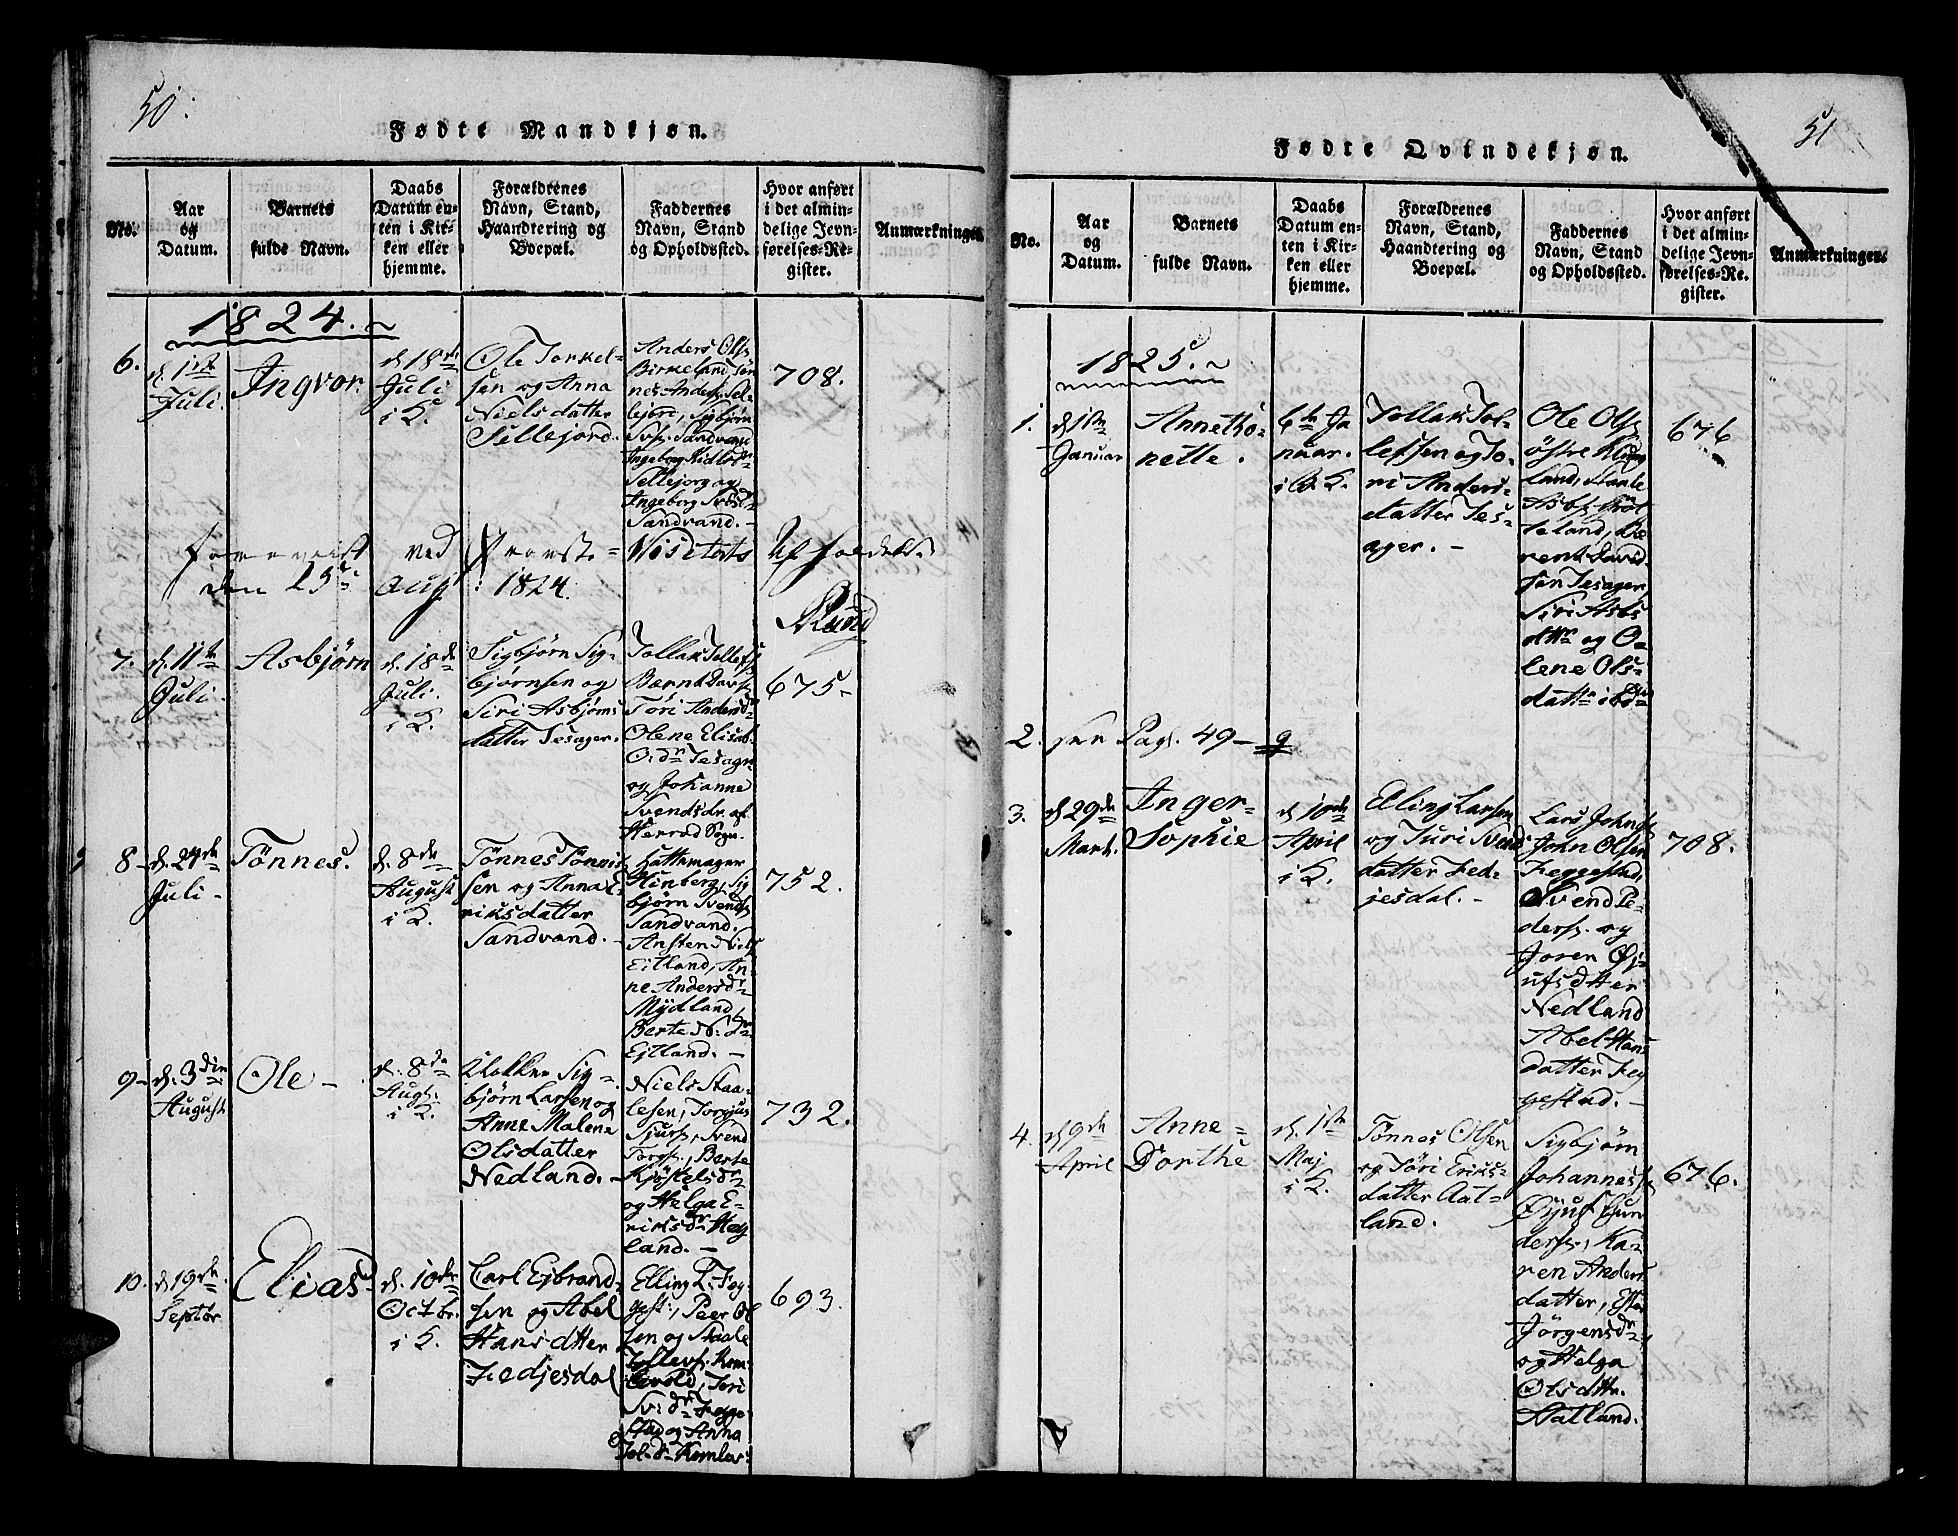 50.
Fødte Mandkjøn.
No.
Aar
og
Datum.
Barnets
fulde Navn.
Daabs
Datum en-
ten i Kir-
ken eller
hjemme.
Forældrenes
Navn, Stand,
Haandtering og
Boepæl.
Faddernes
Navn, Stand
og Opholdssted.
Hvor anført
i det almin-
delige Jevn-
førelses-Re-
gister.
Anmærkninger.
1824.
6.
d. 1ste
Juli.
Ingvor.
d. 18de
Juli
i K.
Ole Torkel-
sen og Anna
Nielsdatter
Sellejord.
Anders Ols.
Birkeland Tøn
nes Anders. Sel-
lejore, Sigbjørn
Svs. Sandvand
Ingeborg
Sellejorg og
Ingeborg Svds
Sandvand.
708.
Foreviist ved Provste-Visitats
den 25 Aug 1824.
7.
d. 11te
Juli
Asbjørn
d. 18de
Juli.
i K.
Sigbjørn Sig-
bjørnsen og
Siri Asbjørns
datter Tesager.
Tollak Tollefs
Bærnt Davs
Tøri Andersd
Olene Elisab.
O. dr Tesager
og Johanne
Svendsdr. af
Herred Sogn.
675-
8-
d. 24de
Juli-
Tønnes.
d. 8de
August
i K.
Tønnes Tønnis
sen og Anna E-
riksdatter
Sandvand.-
Hattemager
Hinberg, Sig
bjørn Svends
Sandvand.
Ansten Nils
Eitland, An-
ne Andersdr
Mydland,
Berte N. dr
Ejtland.-
752.
9-
d. 3die
August
Ole-
d. 8de
Augs.
i K.
Klokker Sig-
bjørn Larsen og
Anne Malene
Olsdatter
Nedland.-
Niels Staa-
lesen, Torgjus
Sjurs, Svend
Torgs., Berte
Kjøstelsdr
og Helga E-
riksdr Høy
land.-
732.
10.
d. 19de
Septbr
Elias
d. 10de
Octbr.
i K.
Carl Ejbrand-
sen og Abel
Hansdtter
Fedjesdal
Elling L. Feg-
gest., Peer Ol
sen og Staale
Tollevs. Kom-
levold, Tori
Sv. dr Fegge-
stad og Anna
Tol-dr Komlev.
693.
51
Fødte Qvindekjøn.
No.
Aar
og
Datum.
Barnets
fulde Navn.
Daabs
Datum en-
ten i Kir-
ken eller
hjemme.
Forældrenes
Navn, Stand,
Haandtering og
Boepæl.
Faddernes
Navn, Stand
og Opholdssted.
Hvor anført
i det almin-
delige Jevn-
førelses-Re-
gister.
Anmærkninger.
1825.
1.
d 1ste
Januar
Annetho-
nette.
6te Ja
nuar.
i K.
Tollak Tol-
lefsen og To-
ri Anders-
datter Tes-
ager.-
Ole Ols.
østre
land, Staale
teland, Be
rent David
sen Tesager,
Siri Asbs
dttr og O-
lene Ols-
datter
676
2. see Pag. 49-
3.
d 29de
Marts.
Inger-
Sophie
d 10de
April
i K.
Elling Larsen
og Turi Svend
datter Fed-
jesdal.-
Lars Johns
John Olsen
Feggestad,
Svend Pe-
ders. og
Joren Øj-
ufsdtter
Nedland
Abel Hans
datter Feg
gestad.-
708.
4.
d 9de
April
Anne-
Dorthe
d. 1ste
Maj
i K.
Tønnes Olsen
og Tøri Eriks-
datter Aat-
land.
Sigbjørn
Johannes
Øjuf Gun
ders., Ka-
ren Anders
datter,
Jörgensdr
og Helga
Olsdttr.
Aatland.
676.